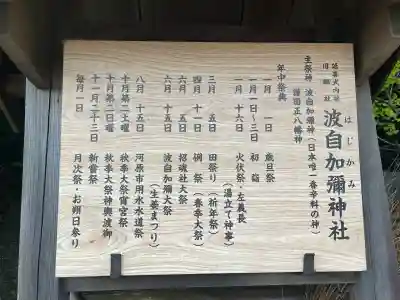 延喜式内社
旧縣社
波自加彌神社
はじかみ
主祭神 波自加彌神(日本唯一 香辛料の神)
護国正八幡神
年中祭典
一月 一日 歳旦祭
一月一日〜三日 初詣
一月 十六日 火伏祭・左義長
(湯立て神事)
三月 五日 田祭り(祈年祭)
四月 十一日 例祭(春季大祭)
六月 五日 招魂社大祭
六月 十五日 波自加彌大祭
(生姜まつり)
八月 十五日 河原市用水水道祭
十月第二土曜 秋季大祭宵宮祭
十月第二日曜 秋季大祭神輿渡御
十一月二十三日 新嘗祭
毎月一日 月次祭・お朔日参り